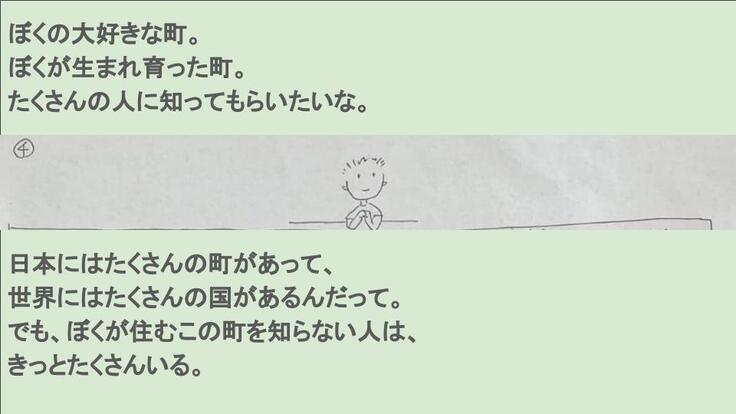 ぼくの大好きな町。
ぼくが生まれ育った町。
たくさんの人に知ってもらいたいな。
④
日本にはたくさんの町があって、
世界にはたくさんの国があるんだって。
でも、ぼくが住むこの町を知らない人は、
きっとたくさんいる。